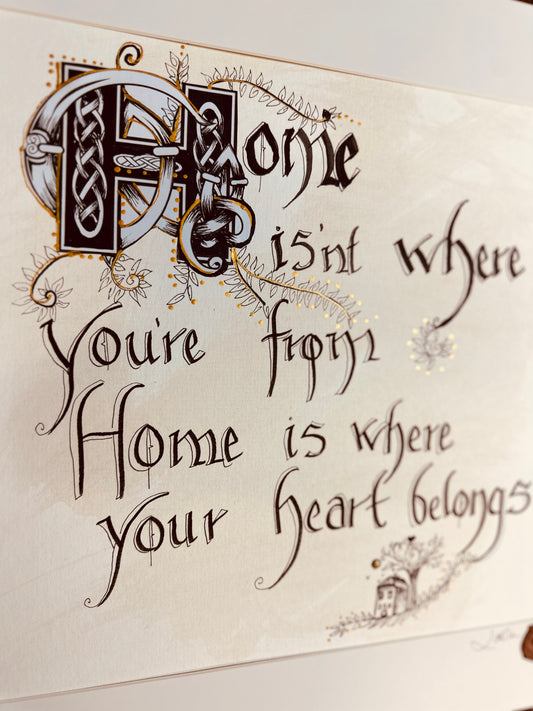 Home
is'nt where
you're from
Home is where
your heart belongs